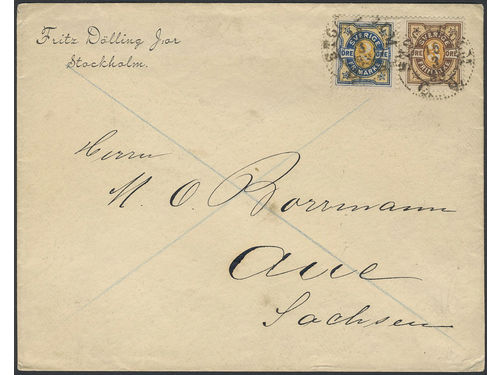 Fritz Dölling J:or
Stockholm.
SVERIGE
ÖRE ÖRE
FRIMÄRKE
SVERIGE
ÖRE ÖRE
FRIMÄRKE
Herrn
M. O. Borrmann
Aue
Sachsen